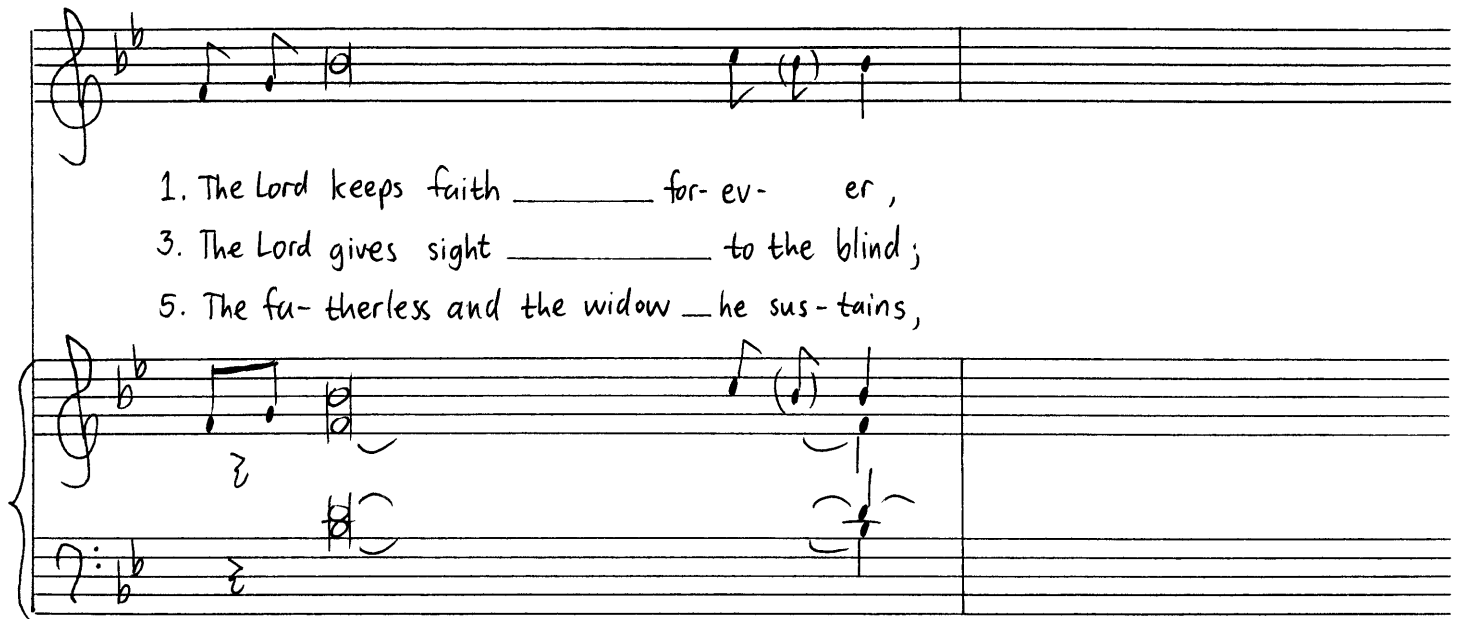 1. The Lord keeps faith ________ for- ev- er,
3. The Lord gives sight ____________ to the blind;
5. The fa- therless and the widow __ he sus- tains,